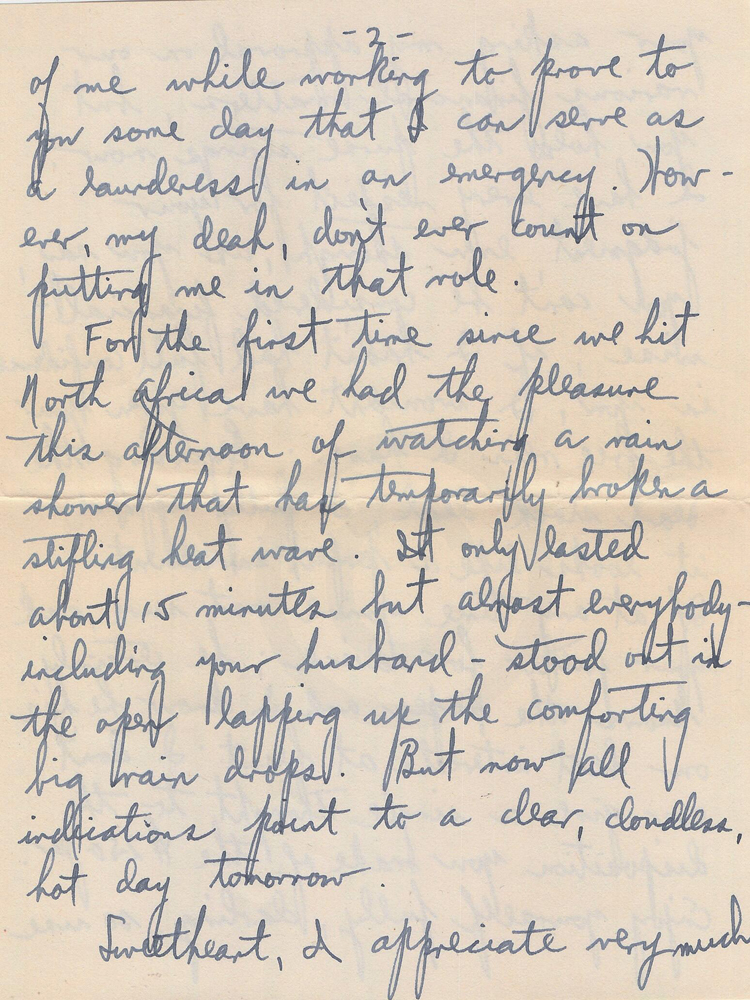 -2-
of me while working to prove to
you some day that I can serve as
a launderess in an emergency. How-
ever, my deah, don't ever count on
putting me in that role.
For the first time since we hit
North Africa we had the pleasure
this afternoon of watching a rain
shower that has temporarily broken a
stifling heat wave. It only lasted
about 15 minutes but almost everybody-
including your husband - stood out in
the open lapping up the comforting
big rain drops. But now all
indications point to a clear, cloudless,
hot day tomorrow.
Sweetheart, I appreciate very much